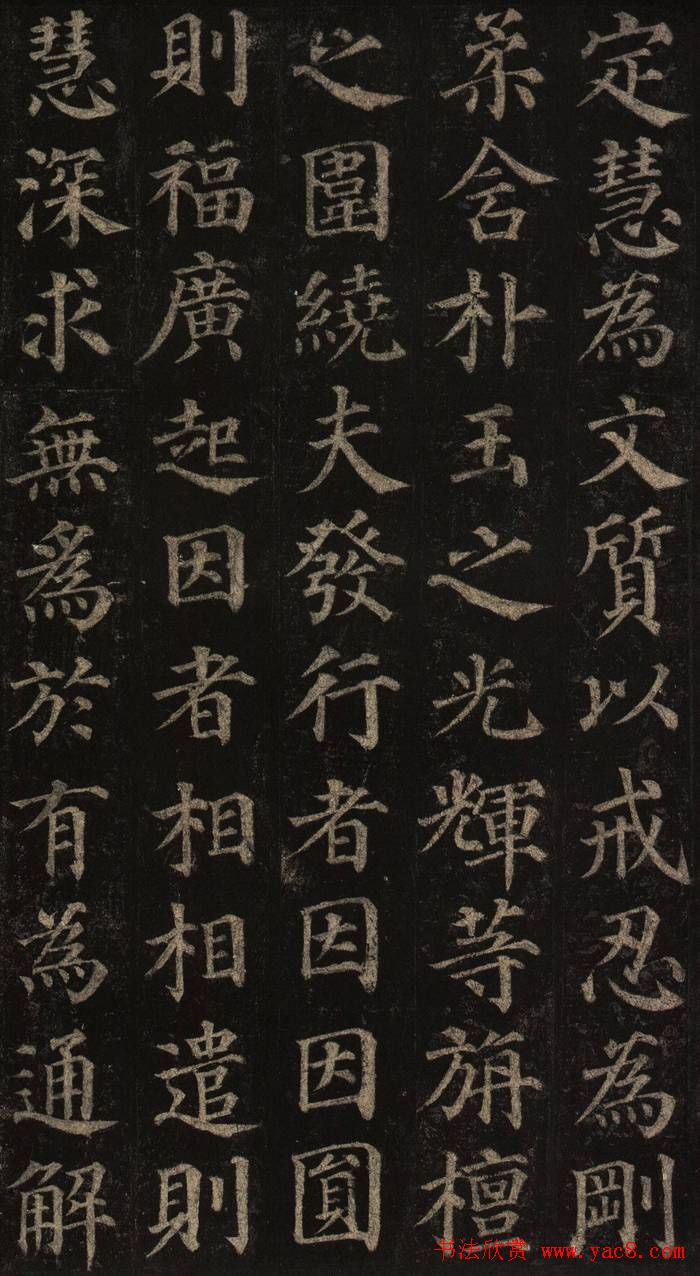 定慧為文質以戒忍為剛
柔含朴玉之光輝等旃檀
之圍繞夫發行者因因圓
則福廣起因者相相遣則
慧深求無為於有為通解
书法欣赏 www.yac8.com